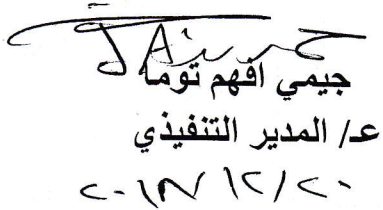 جيمي افهم توما
عـ/ المدير التنفيذي
٢٠١٧/١٢/٢٠